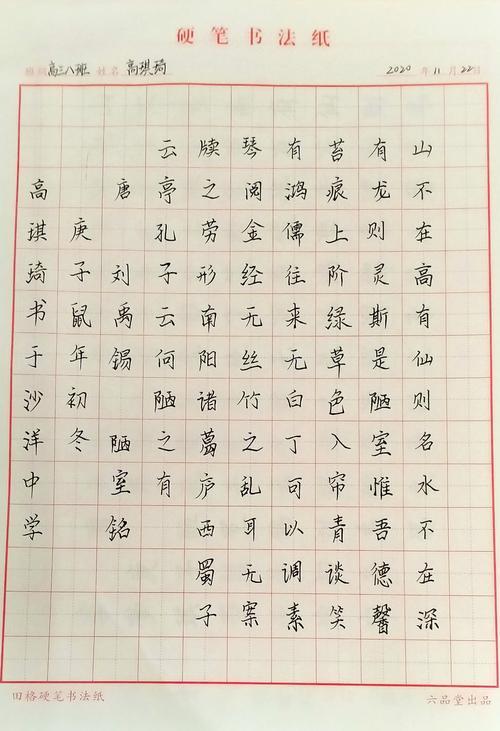 硬笔书法纸
班级 高三八班 姓名 高琪琦 2020 年 11 月 22 日
山不在高有仙则名水不在深
有龙则灵斯是陋室惟吾德馨
苔痕上阶绿草色入帘青谈笑
有鸿儒往来无白丁可以调素
琴阅金经无丝竹之乱耳无案
牍之劳形南阳诸葛庐西蜀子
云亭孔子云何陋之有
唐 刘禹锡 陋室铭
庚子鼠年初冬
高琪琦书于沙洋中学
田格硬笔书法纸 六品堂出品